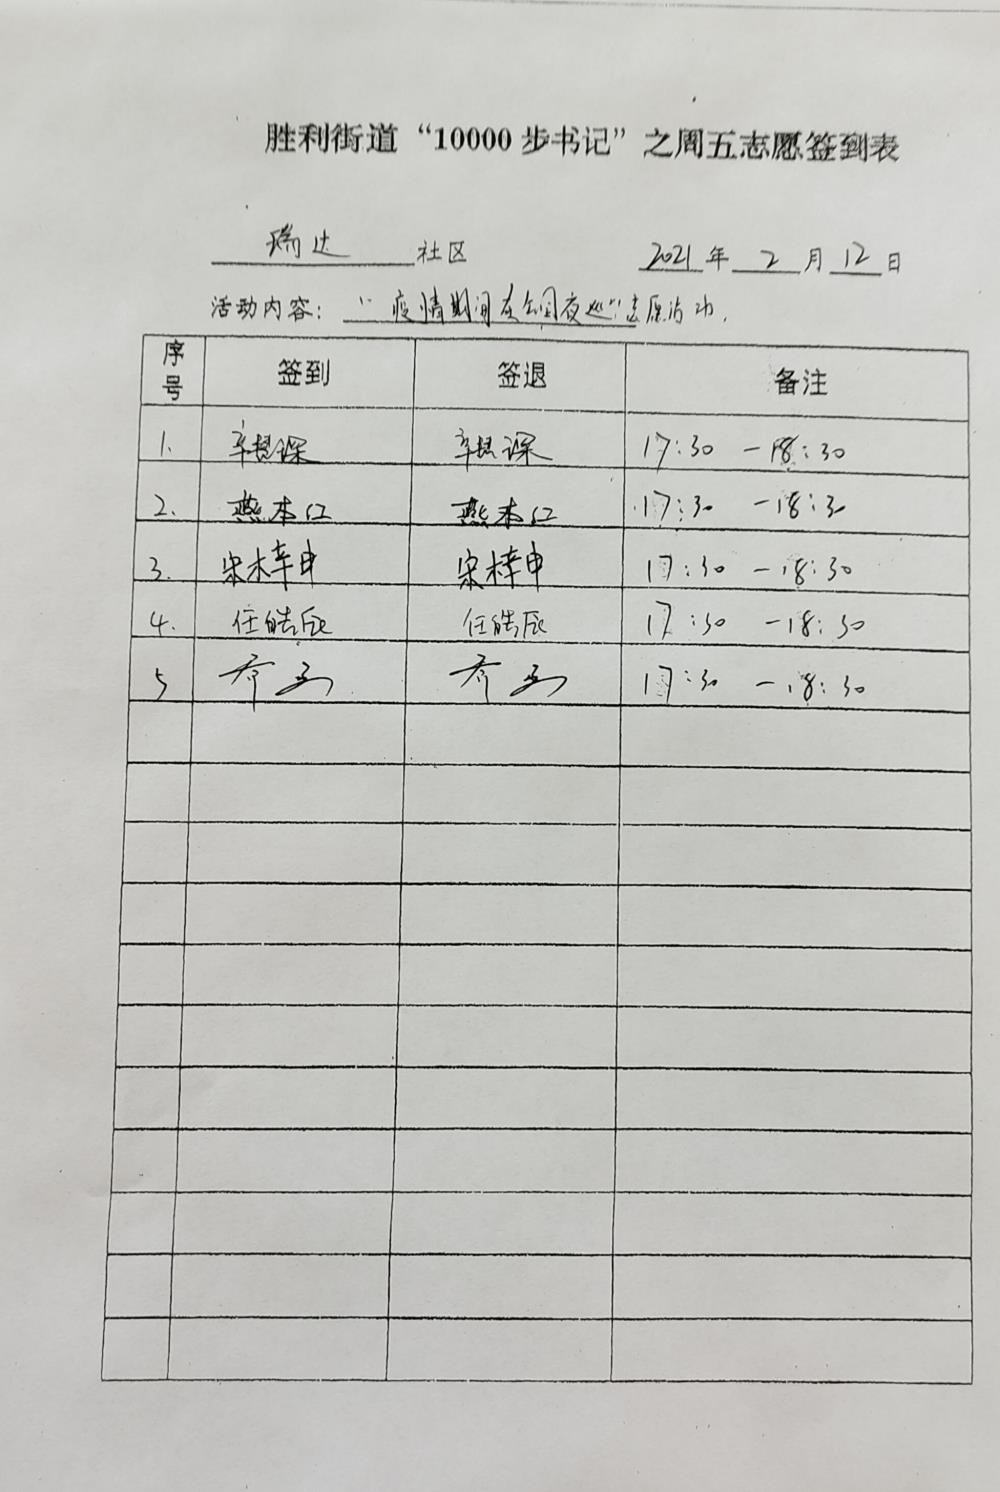 胜利街道“10000步书记”之周五志愿签到表
瑞达 社区 2021年 2 月 12 日
活动内容：“疫情期间在公园夜巡”志愿活动.
序号 签到 签退 备注
1. 17:30 —18:30
2. 燕本江 燕本江 17:30 —18:30
3. 17:30 —18:30
4. 任皓辰 任皓辰 17:30 —18:30
5 17:30 —18:30